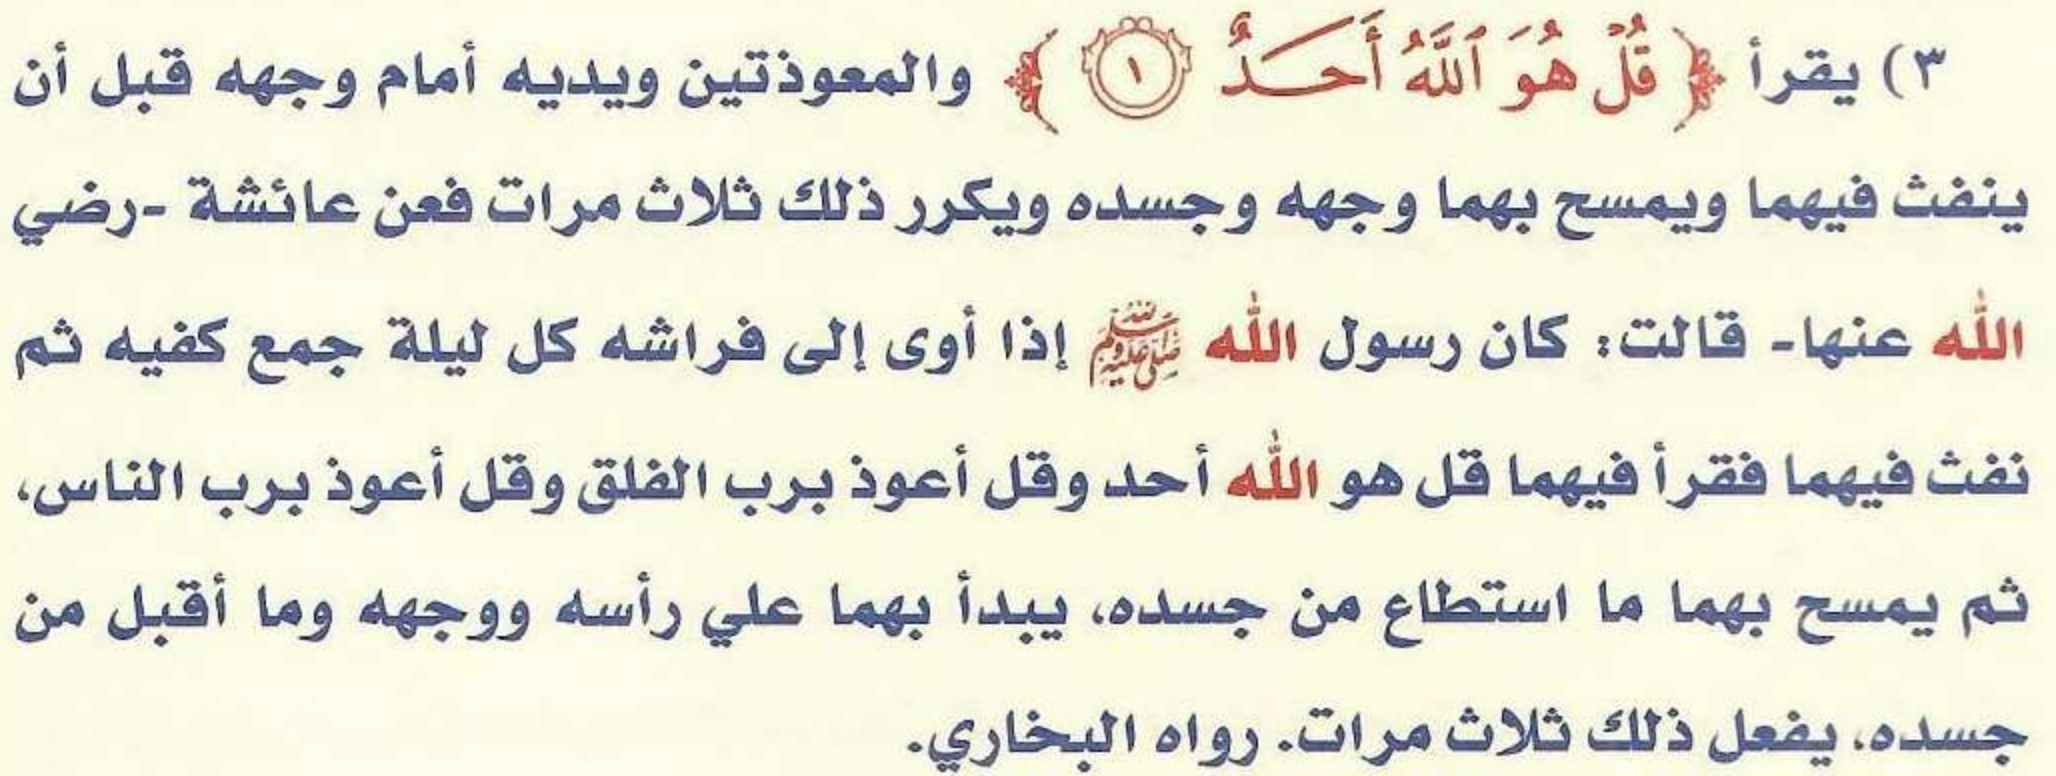 ٣) يقرأ ﴿ قُلْ هُوَ ٱللَّهُ أَحَدٌ ١ ﴾ والمعوذتين ويديه أمام وجهه قبل أن
ينفث فيهما ويمسح بهما وجهه وجسده ويكرر ذلك ثلاث مرات فعن عائشة -رضي
الله عنها- قالت: كان رسول الله ﷺ إذا أوى إلى فراشه كل ليلة جمع كفيه ثم
نفث فيهما فقرأ فيهما قل هو الله أحد وقل أعوذ برب الفلق وقل أعوذ برب الناس،
ثم يمسح بهما ما استطاع من جسده، يبدأ بهما علي رأسه ووجهه وما أقبل من
جسده، يفعل ذلك ثلاث مرات. رواه البخاري.